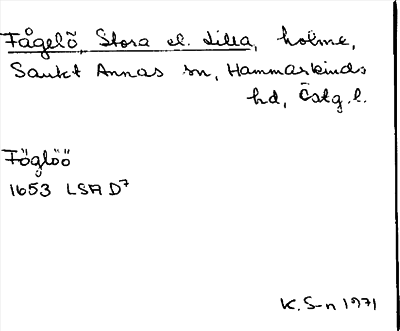 Fågelö, Stora el. Lilla, holme,
Sankt Annas sn, Hammarkinds
hd, Östg. l.
Föglöö
1653 LSA D7
K. S-n 1971